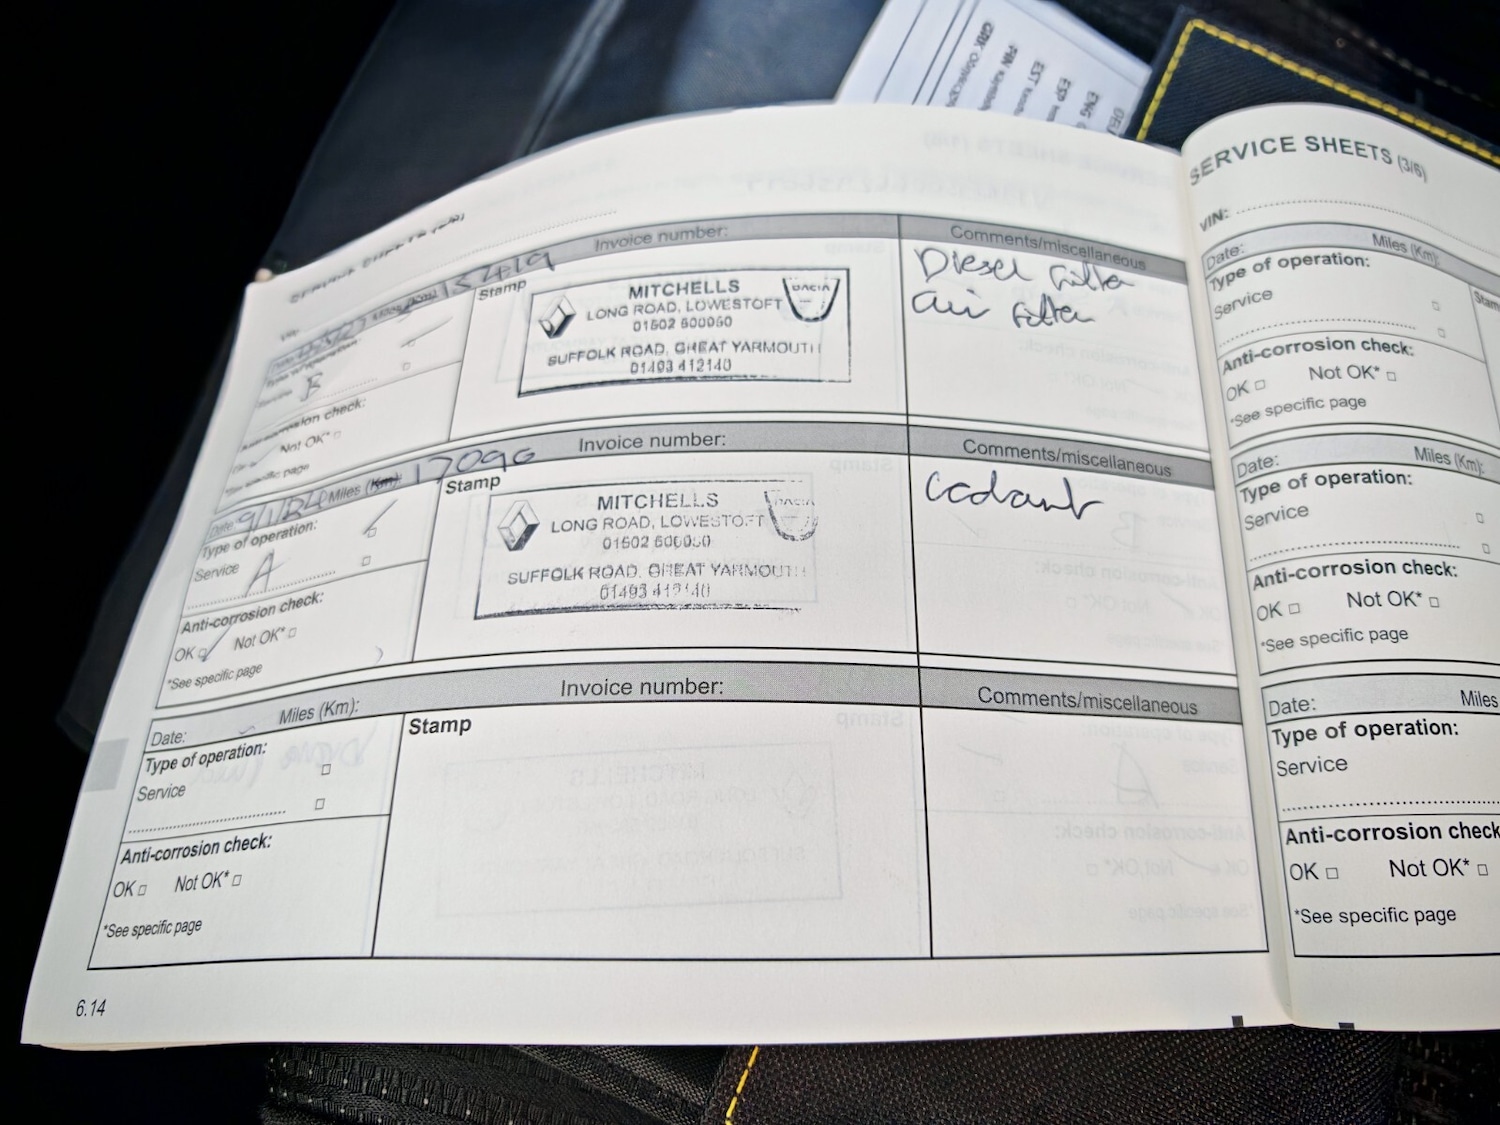 SERVICE SHEETS
Miles (Km) 13419
Invoice number:
Comments/miscellaneous
Type of operation:
Service B
Anti-corrosion check:
Not OK*
*See specific page
Stamp
MITCHELLS
LONG ROAD, LOWESTOFT
DACIA
SUFFOLK ROAD, GREAT YARMOUTH
01493 412140
Diesel filter
air filter
Date: Miles (Km) 17096
Invoice number:
Comments/miscellaneous
Type of operation:
Service A
Anti-corrosion check:
OK Not OK*
*See specific page
Stamp
MITCHELLS
LONG ROAD, LOWESTOFT
DACIA
SUFFOLK ROAD, GREAT YARMOUTH
01493 412140
Date: Miles (Km):
Invoice number:
Comments/miscellaneous
Type of operation:
Service
Anti-corrosion check:
OK Not OK*
*See specific page
Stamp
6.14
SERVICE SHEETS (3/6)
VIN:
Date: Miles (Km):
Type of operation:
Service
Anti-corrosion check:
OK Not OK*
*See specific page
Date: Miles (Km):
Type of operation:
Service
Anti-corrosion check:
OK Not OK*
*See specific page
Date: Miles
Type of operation:
Service
Anti-corrosion check
OK Not OK*
*See specific page
EST
ESP
ENG